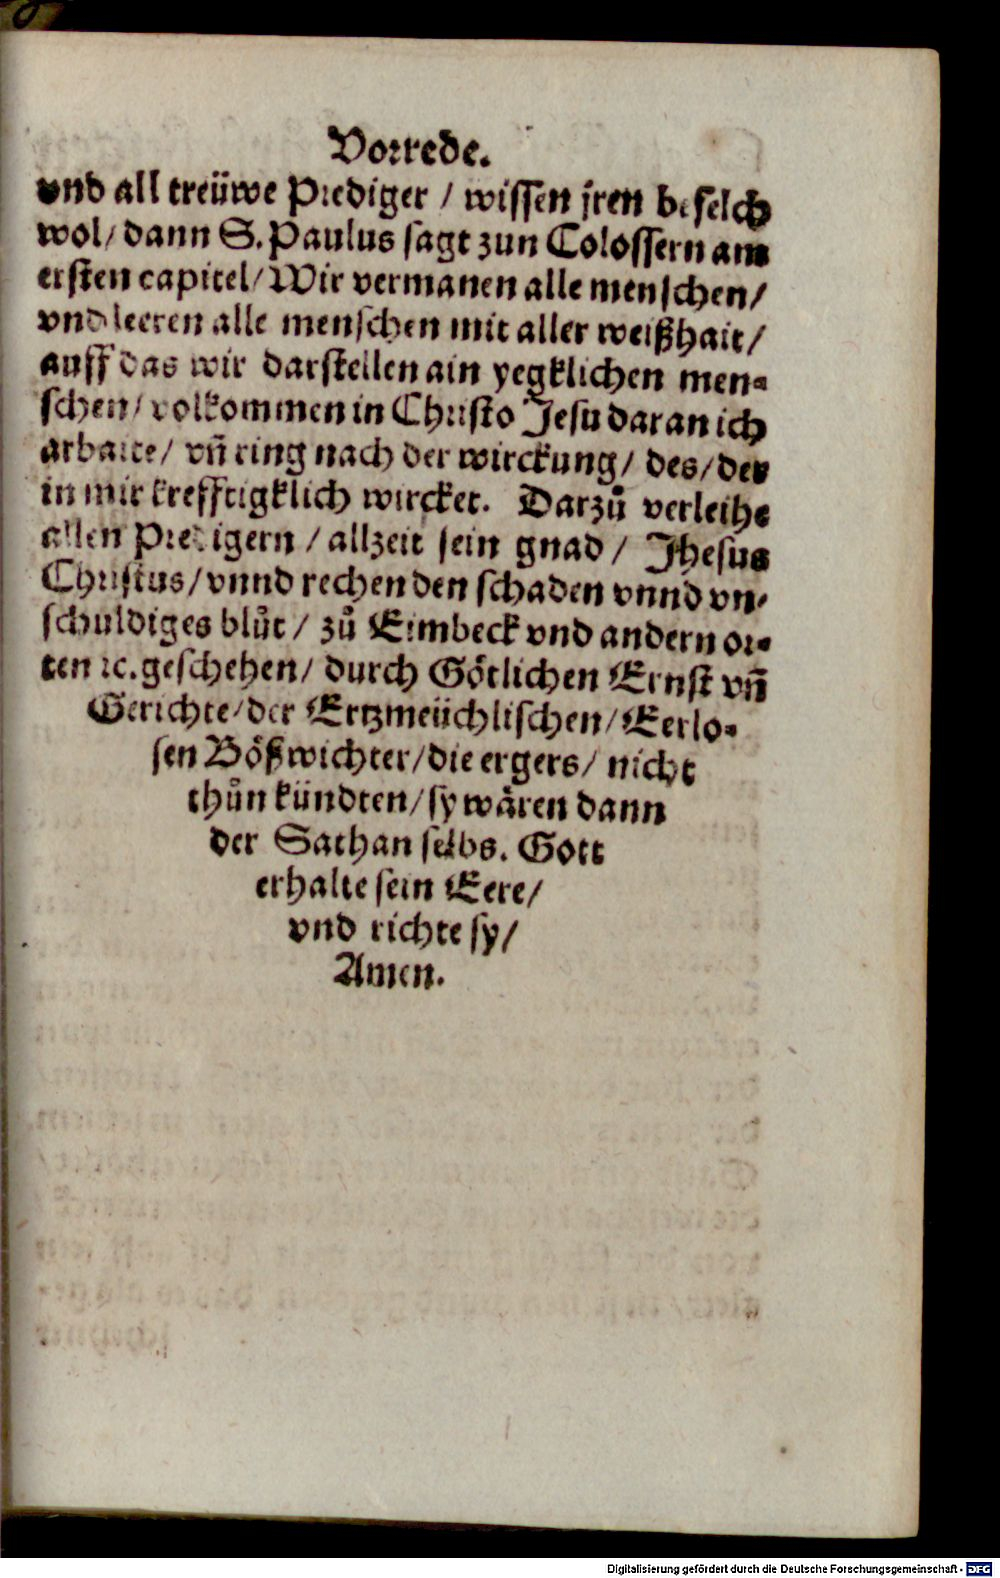 Vorrede.
vnd all treüwe Prediger / wissen jren befelch
wol / dann S. Paulus sagt zun Colossern am
ersten capitel / Wir vermanen alle menschen /
vnd leeren alle menschen mit aller weißhait /
auff das wir darstellen ain yegklichen men-
schen / volkommen in Christo Jesu daran ich
arbaite / vñ ring nach der wirckung / des / der
in mir krefftigklich wircket. Darzů verleihe
allen Predigern / allzeit sein gnad / Jhesus
Christus / vnnd rechen den schaden vnnd vn-
schuldiges blůt / zů Eimbeck vnd andern or-
ten ꝛc. geschehen / durch Götlichen Ernst vñ
Gerichte / der Ertzmeüchlischen / Eerlo-
sen Bößwichter / die ergers / nicht
thůn kündten / sy wären dann
der Sathan selbs. Gott
erhalte sein Eere /
vnd richte sy /
Amen.
Digitalisierung gefördert durch die Deutsche Forschungsgemeinschaft - DFG